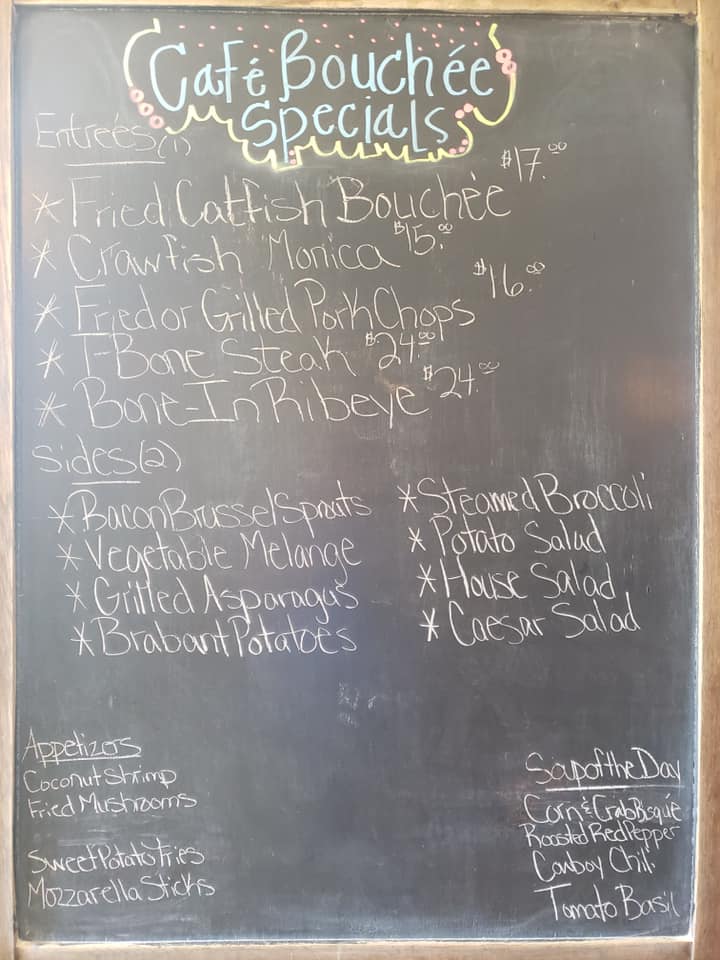 Café Bouchée
Specials
Entreés(1)
* Fried Catfish Bouchèe $17.00
* Crawfish Monica $15.00
* Fried or Grilled Pork Chops $16.00
* T-Bone Steak $24.00
* Bone-In Ribeye $24.00
Sides(2)
* Bacon Brussel Sprouts
* Vegetable Melange
* Grilled Asparagus
* Brabant Potatoes
* Steamed Broccoli
* Potato Salad
* House Salad
* Caesar Salad
Appetizers
Coconut Shrimp
Fried Mushrooms
Sweet Potato Fries
Mozzarella Sticks
Soup of the Day
Corn & Crab Bisque
Roasted Red Pepper
Cowboy Chili
Tomato Basil